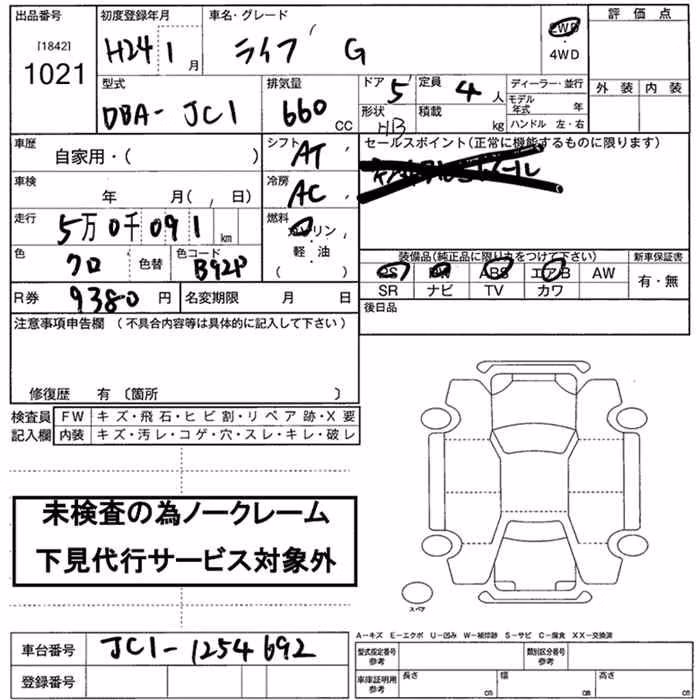 出品番号
[1842]
1021
初度登録年月
H24 1 月
車名・グレード
ライフ G
2WD
・
4WD
評価点
外装 内装
型式
DBA-JC1
排気量
660 cc
ドア 5
定員 4 人
形状 HB
積載 kg
ディーラー・並行
モデル年式 年
ハンドル 左・右
車歴
自家用・( )
車検
年 月( , 日)
走行
5万0千091 km
色
クロ
色替
色コード
B92P
シフト
AT
冷房
AC
燃料
ガソリン
・
軽・油
( )
セールスポイント(正常に機能するものに限ります)
装備品(純正品に限り丸をつけて下さい)
PS PW ABS エアB AW
SR ナビ TV カワ
新車保証書
有・無
R券 9380 円
名変期限 月 日
後日品
注意事項申告欄 (不具合内容等は具体的に記入して下さい)
修復歴 有 〔箇所 〕
検査員
記入欄
FW キズ・飛石・ヒビ割・リペア跡・X要
内装 キズ・汚レ・コゲ・穴・スレ・キレ・破レ
未検査の為ノークレーム
下見代行サービス対象外
スペア
A-キズ E-エクボ U-凹み W-補修跡 S-サビ C-腐食 XX-交換済
車台番号 JC1-1254692
登録番号
型式指定番号
参考
類別区分番号
参考
車庫証明用
参考
長さ cm
幅 cm
高さ cm